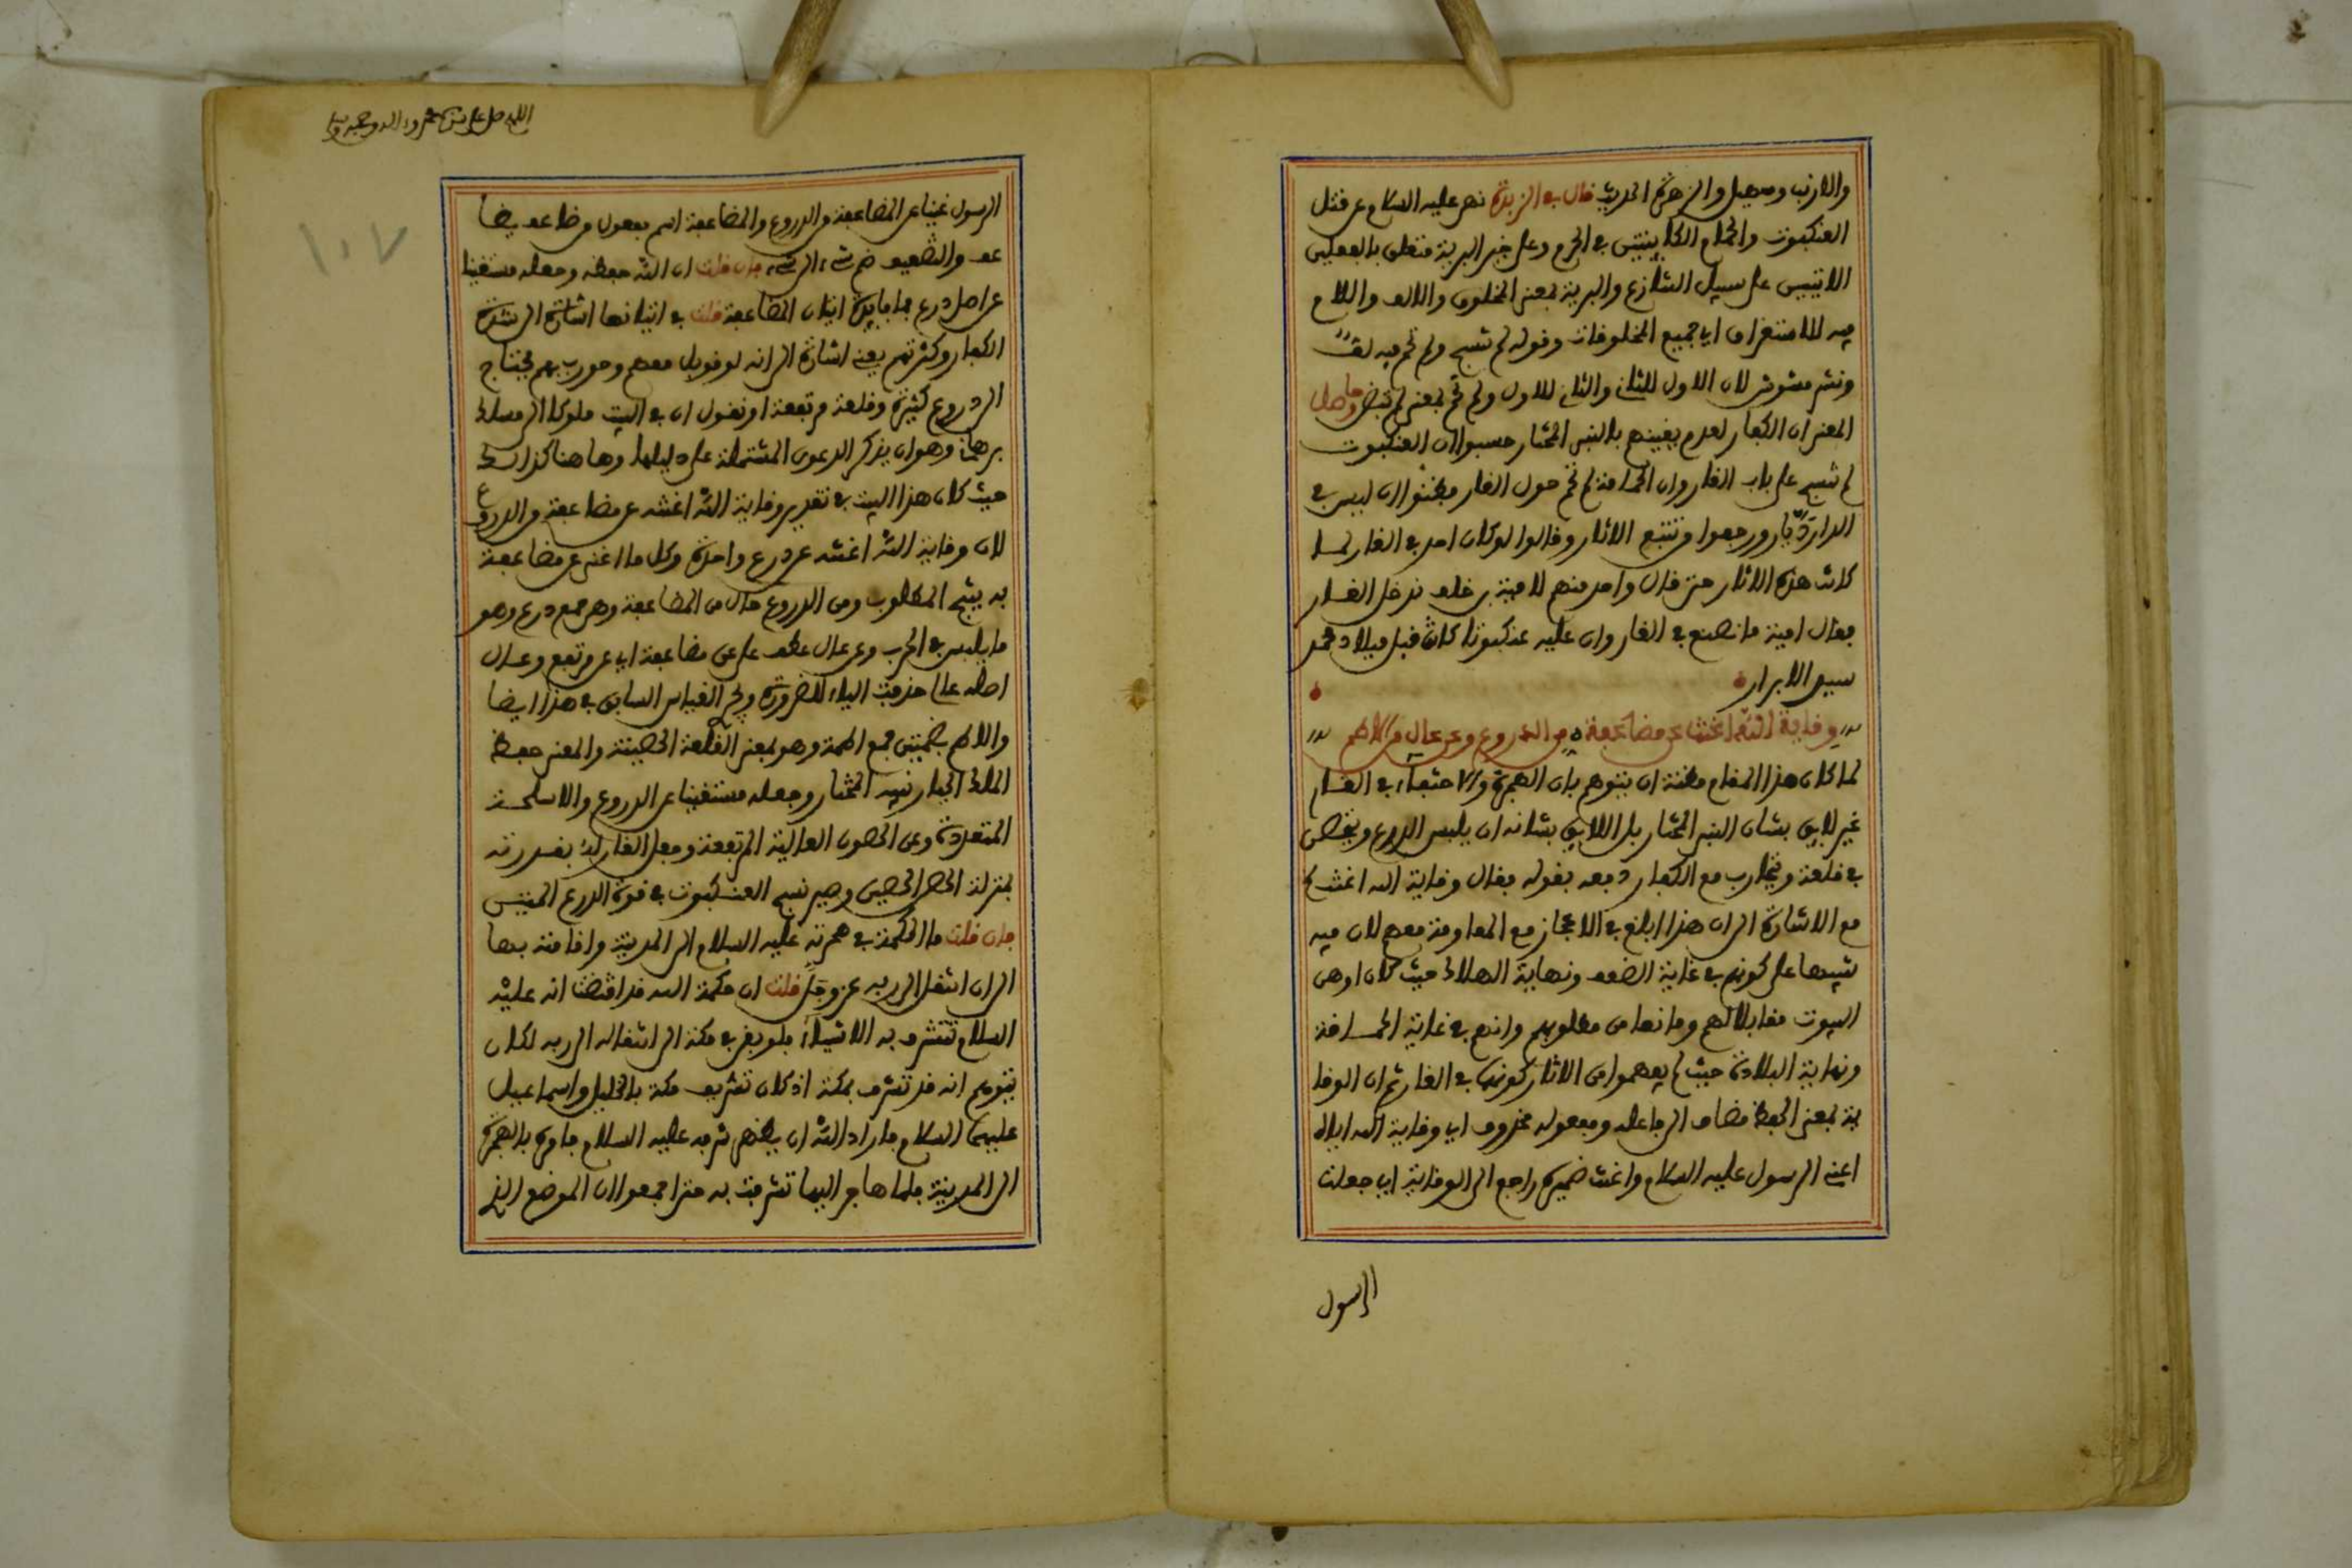 والارنب وسهيل والزهرة الحديث قال في الزبدة نهى عليه السلام عن قتل
العنكبوت والحمام الكاينين في الحرم وعلى خير البرية متعلق بالفعلين
الاتيين على سبيل التنازع والبرية بمعنى المخلوق والالف واللام
فيه للاستغراق اي جميع المخلوقات وقوله لم تنسج ولم تحم فيه لف
ونشر مشوش لان الاول للثاني والثاني للاول ولم تحم بمعنى لم تبض وحاصل
المعنى ان الكفار لعدم يقينهم بالنبي المختار حسبوا ان العنكبوت
لم تنسج على باب الغار وان الحمامة لم تحم حول الغار وظنوا ان ليس في
الدار ديار ورجعوا من تتبع الاثار وقالوا لو كان احد في الغار لما
كانت هذه الاثار حتى قال واحد منهم لامية بن خلف ندخل الغار
فقال امية ما نصنع في الغار وان عليه عنكبوتا كان قبل ميلاد محمد
سيد الابرار
وقاية الله اغنت عن مضاعفة من الدروع وعن عال من الاطم
لما كان هذا المقام مظنة ان يتوهم بان الهجرة والاختفاء في الغار
غير لايق بشان النبي المختار بل اللايق بشانه ان يلبس الدرع ويتحصن
في قلعة ويحارب مع الكفار دفعه بقوله فقال وقاية الله اغنت
مع الاشارة الى ان هذا ابلغ في الاعجاز مع المقاومة معهم لان فيه
تنبيها على كونهم في غاية الضعف ونهاية الهلاك حيث كان اوهن
البيوت مقابلا لهم ومانعا من مطلوبهم وانهم في غاية الحماقة
ونهاية البلادة حيث لم يفهموا من الاثار كونهما في الغار ثم ان الوقا
ية بمعنى الحفظ مضاف الى فاعله ومفعوله محذوف اي وقاية الله اياه
اعني الرسول عليه السلام واغنت ضميره راجع الى الوقاية اي جعلت
الرسول
اللهم صل على سيدنا محمد وءاله وصحبه وسلم
١٠٧
الرسول غنيا عن المضاعفة من الدروع والمضاعفة اسم مفعول من ضاعف يضا
عف والتضعيف ضم شيء الى شيء فان قلت ان الله حفظه وجعله مستغنيا
عن اصل درع فما فايدة اتيان المضاعفة قلت في اتيانها اشارة الى شدة
الكفار وكثرتهم يعني اشارة الى انه لو قوبل معهم وحورب بهم يحتاج
الى دروع كثيرة وقلعة مرتفعة او نقول ان في البيت سلوكا الى مسلك
برهاني وهو ان يذكر الدعوى المشتملة على دليلها وها هنا كذلك
حيث كان هذا البيت في تقدير وقاية الله اغنت عن مضاعفة من الدروع
لان وقاية الله اغنت عن درع واحدة وكل ما اغنى عن مضاعفة
به ينتج المطلوب ومن الدروع حال من المضاعفة وهي جمع درع وهو
ما يلبس في الحرب وعن عال عطف على عن مضاعفة اي عن مرتفع وعال
اصله عالي حذفت الياء للضرورة ويجرى القياس السابق في هذا ايضا
والاطم بضمتين جمع اطمة وهو بمعنى القلعة الحصينة والمعنى حفظ
الملك الجبار نبيه المختار وجعله مستغنيا عن الدروع والاسلحة
المتعددة وعن الحصون العالية المرتفعة وجعل الغار له بقدرته
بمنزلة الحصن الحصين وصير نسج العنكبوت في قوة الدرع المتين
فان قلت ما الحكمة في هجرته عليه السلام الى المدينة واقامته بها
الى ان انتقل الى ربه عز وجل قلت ان حكمة الله قد اقتضت انه عليه
السلام تتشرف به الاشياء فلو بقي في مكة الى انتقاله الى ربه لكان
يتوهم انه قد تشرف بمكة اذ كان تشريف مكة بالخليل واسماعيل
عليهما السلام فاراد الله ان يظهر شرفه عليه السلام فامره بالهجرة
الى المدينة فلما هاجر اليها تشرفت به حتى اجمعوا ان الموضع الذي